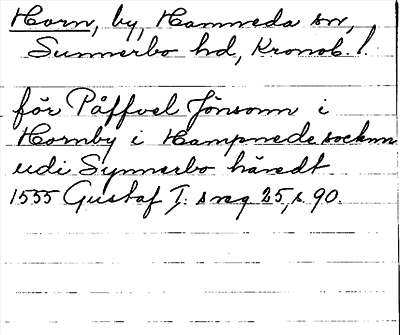 Horn, by, Hamneda sn,
Sunnerbo hd, Kronob. l.
för Påffvel Jönsonn i
Hornby i Hampnede socknn
udi Synnerbo häredt
1555 Gustaf I: s reg 25, s. 90.